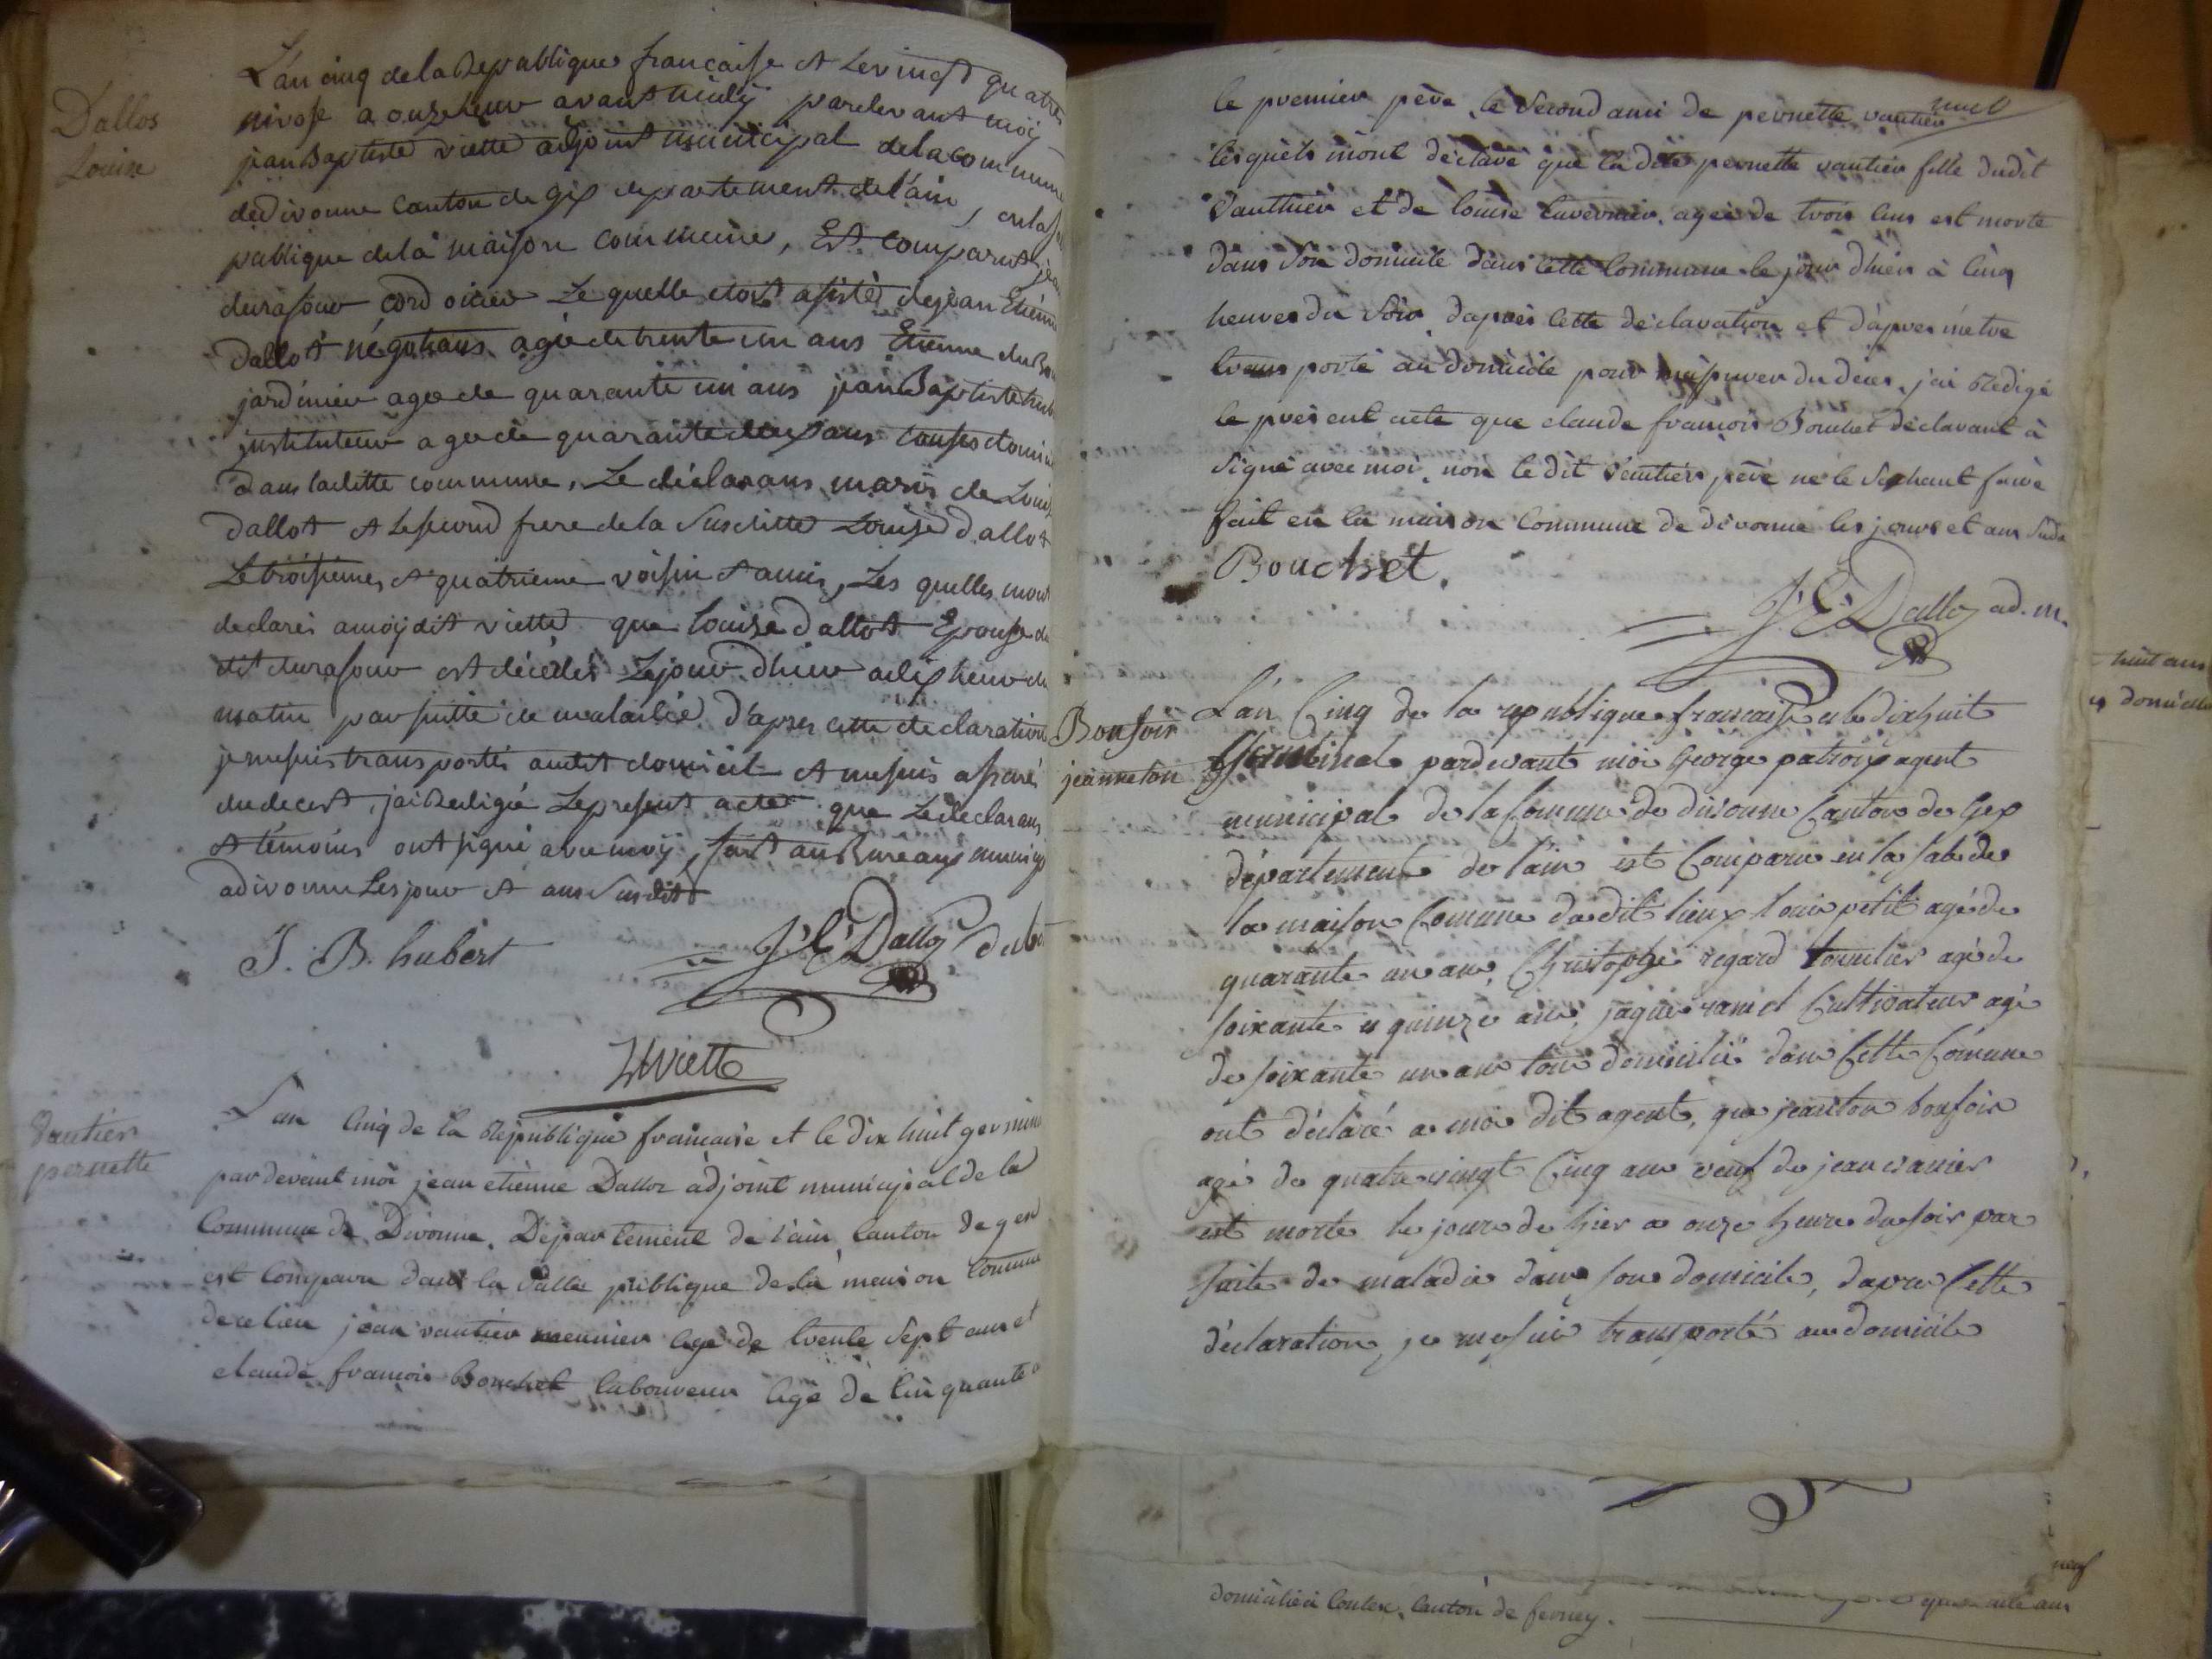 Dallos
Louise
L'an cinq de la Republique francaise et Le vingt quatre
nivose a onze heur avant midij pardevant moij
jean Baptiste viette adjoint municipal de la commune
de divonne canton de gex departement de l'ain, en la
publique de la maison commune, Est comparut jean
durafour cordonier Le quelle etoit asistés de jean Etienne
Dallot négotians agé de trente un ans Etienne du
jardinier agé de quarante un ans jean Baptiste
instituteur agé de quarante deux ans tous
dans laditte commune, Le déclarans maris de Louise
dallot et Le second frere de la susditte Louise dallot
Le troisiemes et quatrieme voisin et amis, Les quelles mont
declarés a moij dit viette que Louise dallot Epouse du
dit durafour est décédés Le jour d'hier a dix heur du
matin par suitte de maladie, D'apres cette declaration
je me suis transportés audit domicil et me suis assuré
du decest, jai Redigée Le present acte que Le declarans
et témoins ont signé avec moij, fait au Bureaux
a divonne Les jour et ans susdits
J. B. hubert
J E Dalloz
Viette
Vautier
pernette
L'an cinq de la République francaise et le dix huit
par devant moi jean etienne Dalloz adjoint municipal de la
Commune de Divonne, Département de l'ain, canton de gex
est comparu dans la salle publique de la maison commune
de ce lieu jean vautier meunier agé de trente sept ans et
claude francois Bouchet laboureur agé de cinquante
le premier père, le second ami de pernette vautier
lesquels m'ont déclaré que la dite pernette vautier fille dudit
Vauthier et de louise laverniere, agée de trois ans est morte
dans son domicile dans cette commune le jour d'hier à cinq
heures du soir, d'apres cette déclaration et d'apres m'etre
transporté au domicile pour m'assurer du déces, j'ai rédigé
le present acte que claude francois Bouchet déclarant à
signé avec moi, non le dit vautier père ne le sachant faire
fait en la maison commune de divonne les jours et ans
Bouchet.
J E Dalloz ad. m.
Bonfoir
jeanneton
L'an Cinq de la republique francaise et le dixhuit
Germinal pardevant moi George patroix agent
municipal de la Comune de divonne Canton de Gex
département de l'ain est Comparu en la sale de
la maison Comune dudit lieux louis petit agé de
quarante un ans, Christophe regard tonnelier agé de
soixante et quinze ans, jaque ramel Cultivateur agé
de soixante un ans tous domicilié dans Cette Comune
ont déclaré a moi dit agent, que jeanton bonfoir
agé de quatre vingt Cinq ans veuf de jean
est morte le jour de hier a onze heure du soir par
suite de maladie dans son domicile, dapre Cette
déclaration, je me suis transporté au domicile
huit ans
neuf
quarante ans
domicilié a Contex, canton de ferney.